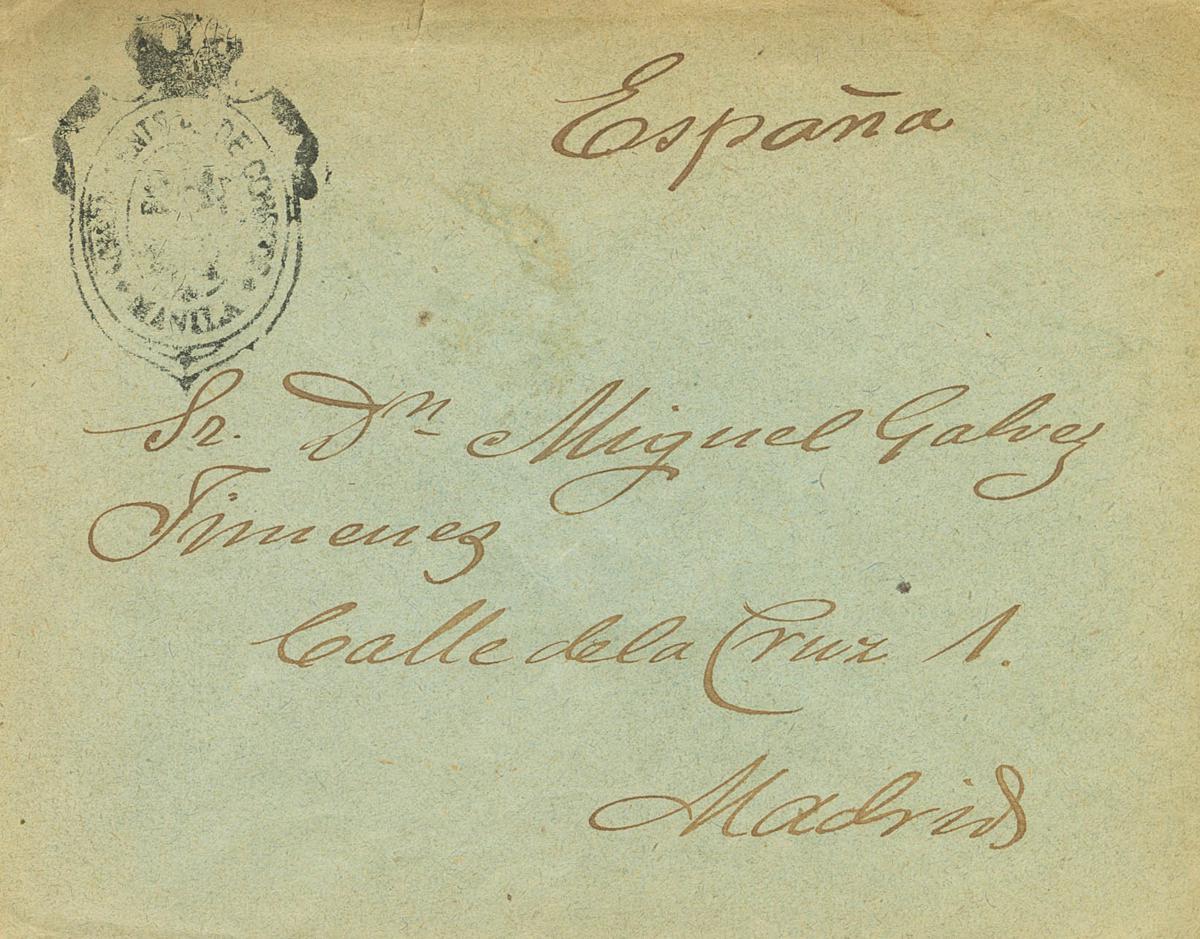 España
DE CORREOS
MANILA
Sr. Dn Miguel Galvez
Jimenez
Calle de la Cruz 1.
Madrid